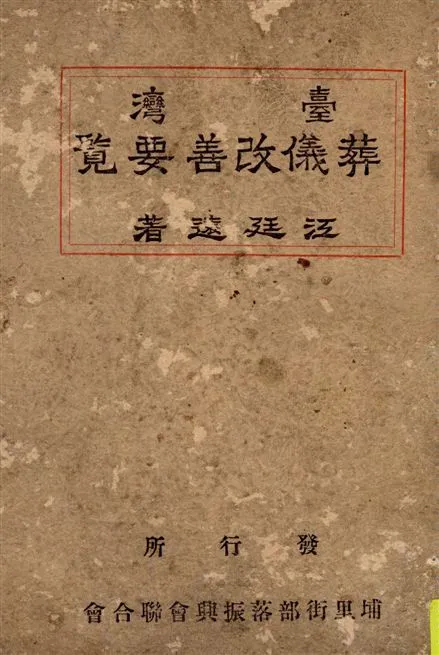 臺灣
葬儀改善要覧
江廷遠著
發行所
埔里街部落振興會聯合會